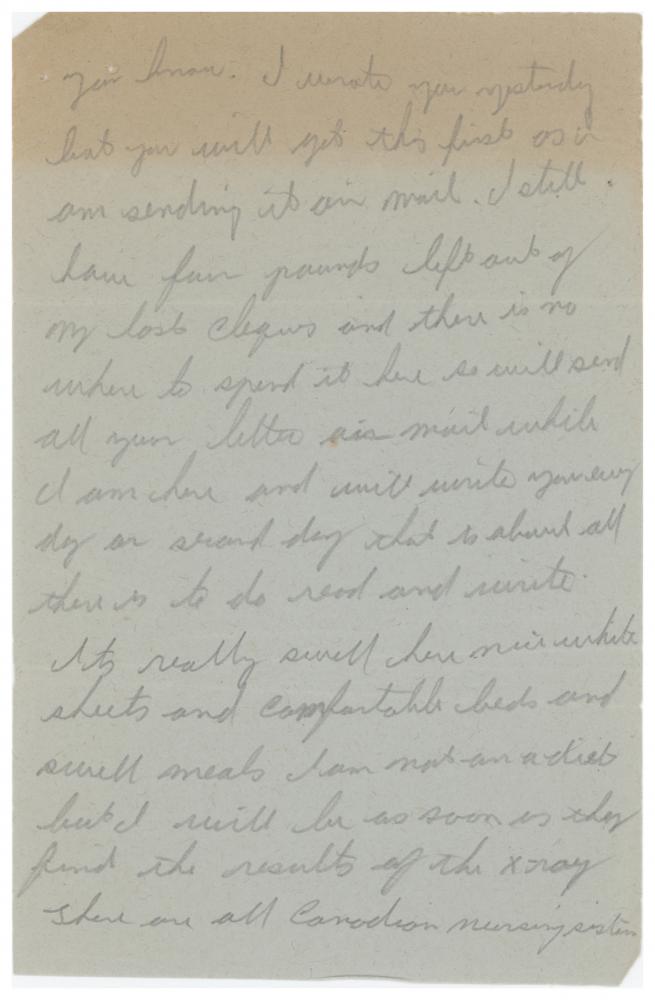 you know. I wrote you yesterday
but you will get this first as i
am sending it air mail. I still
have four pounds left out of
my last cheque and there is no
where to spend it here so will send
all your letter air mail while
I am here and will write you every
day or second day that is about all
there is to do read and write.
Its really swell here nice white
sheets and comfortable beds and
swell meals I am not on a diet
but I will be as soon as they
find the results of the x-ray
There are all Canadian nursing sisters